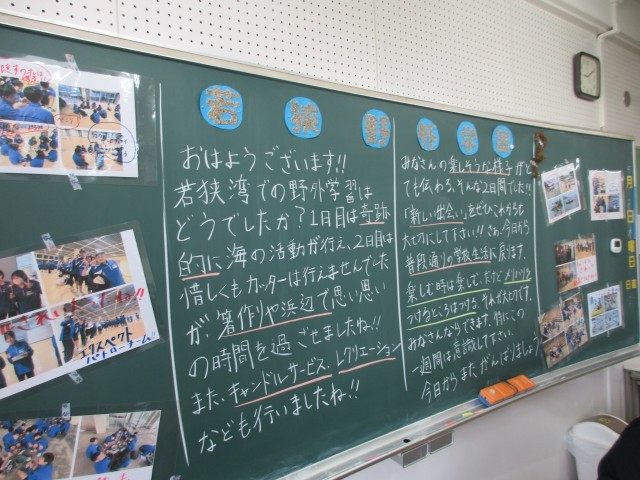 若狭野外学習
おはようございます!!
若狭湾での野外学習は
どうでしたか?1日目は奇跡
的に海の活動が行え、2日目は
惜しくもカッターは行えませんでした
が、箸作りや浜辺で思い思い
の時間を過ごせましたね!!
また、キャンドルサービス、レクリエーション
なども行いましたね!!
みなさんの楽しそうな様子がと
ても伝わる、そんな2日間でした!!
「新しい出会い」をぜひこれからも
大切にして下さい!! さぁ、今日から
普段通りの学校生活に戻ります。
楽しむ時は楽しむ、だけどメリハリを
つけるところはつける。それが大切です。
みなさんならできます。特にこの
一週間は意識して下さい。
今日からまた、がんばりましょう
月
日
曜日